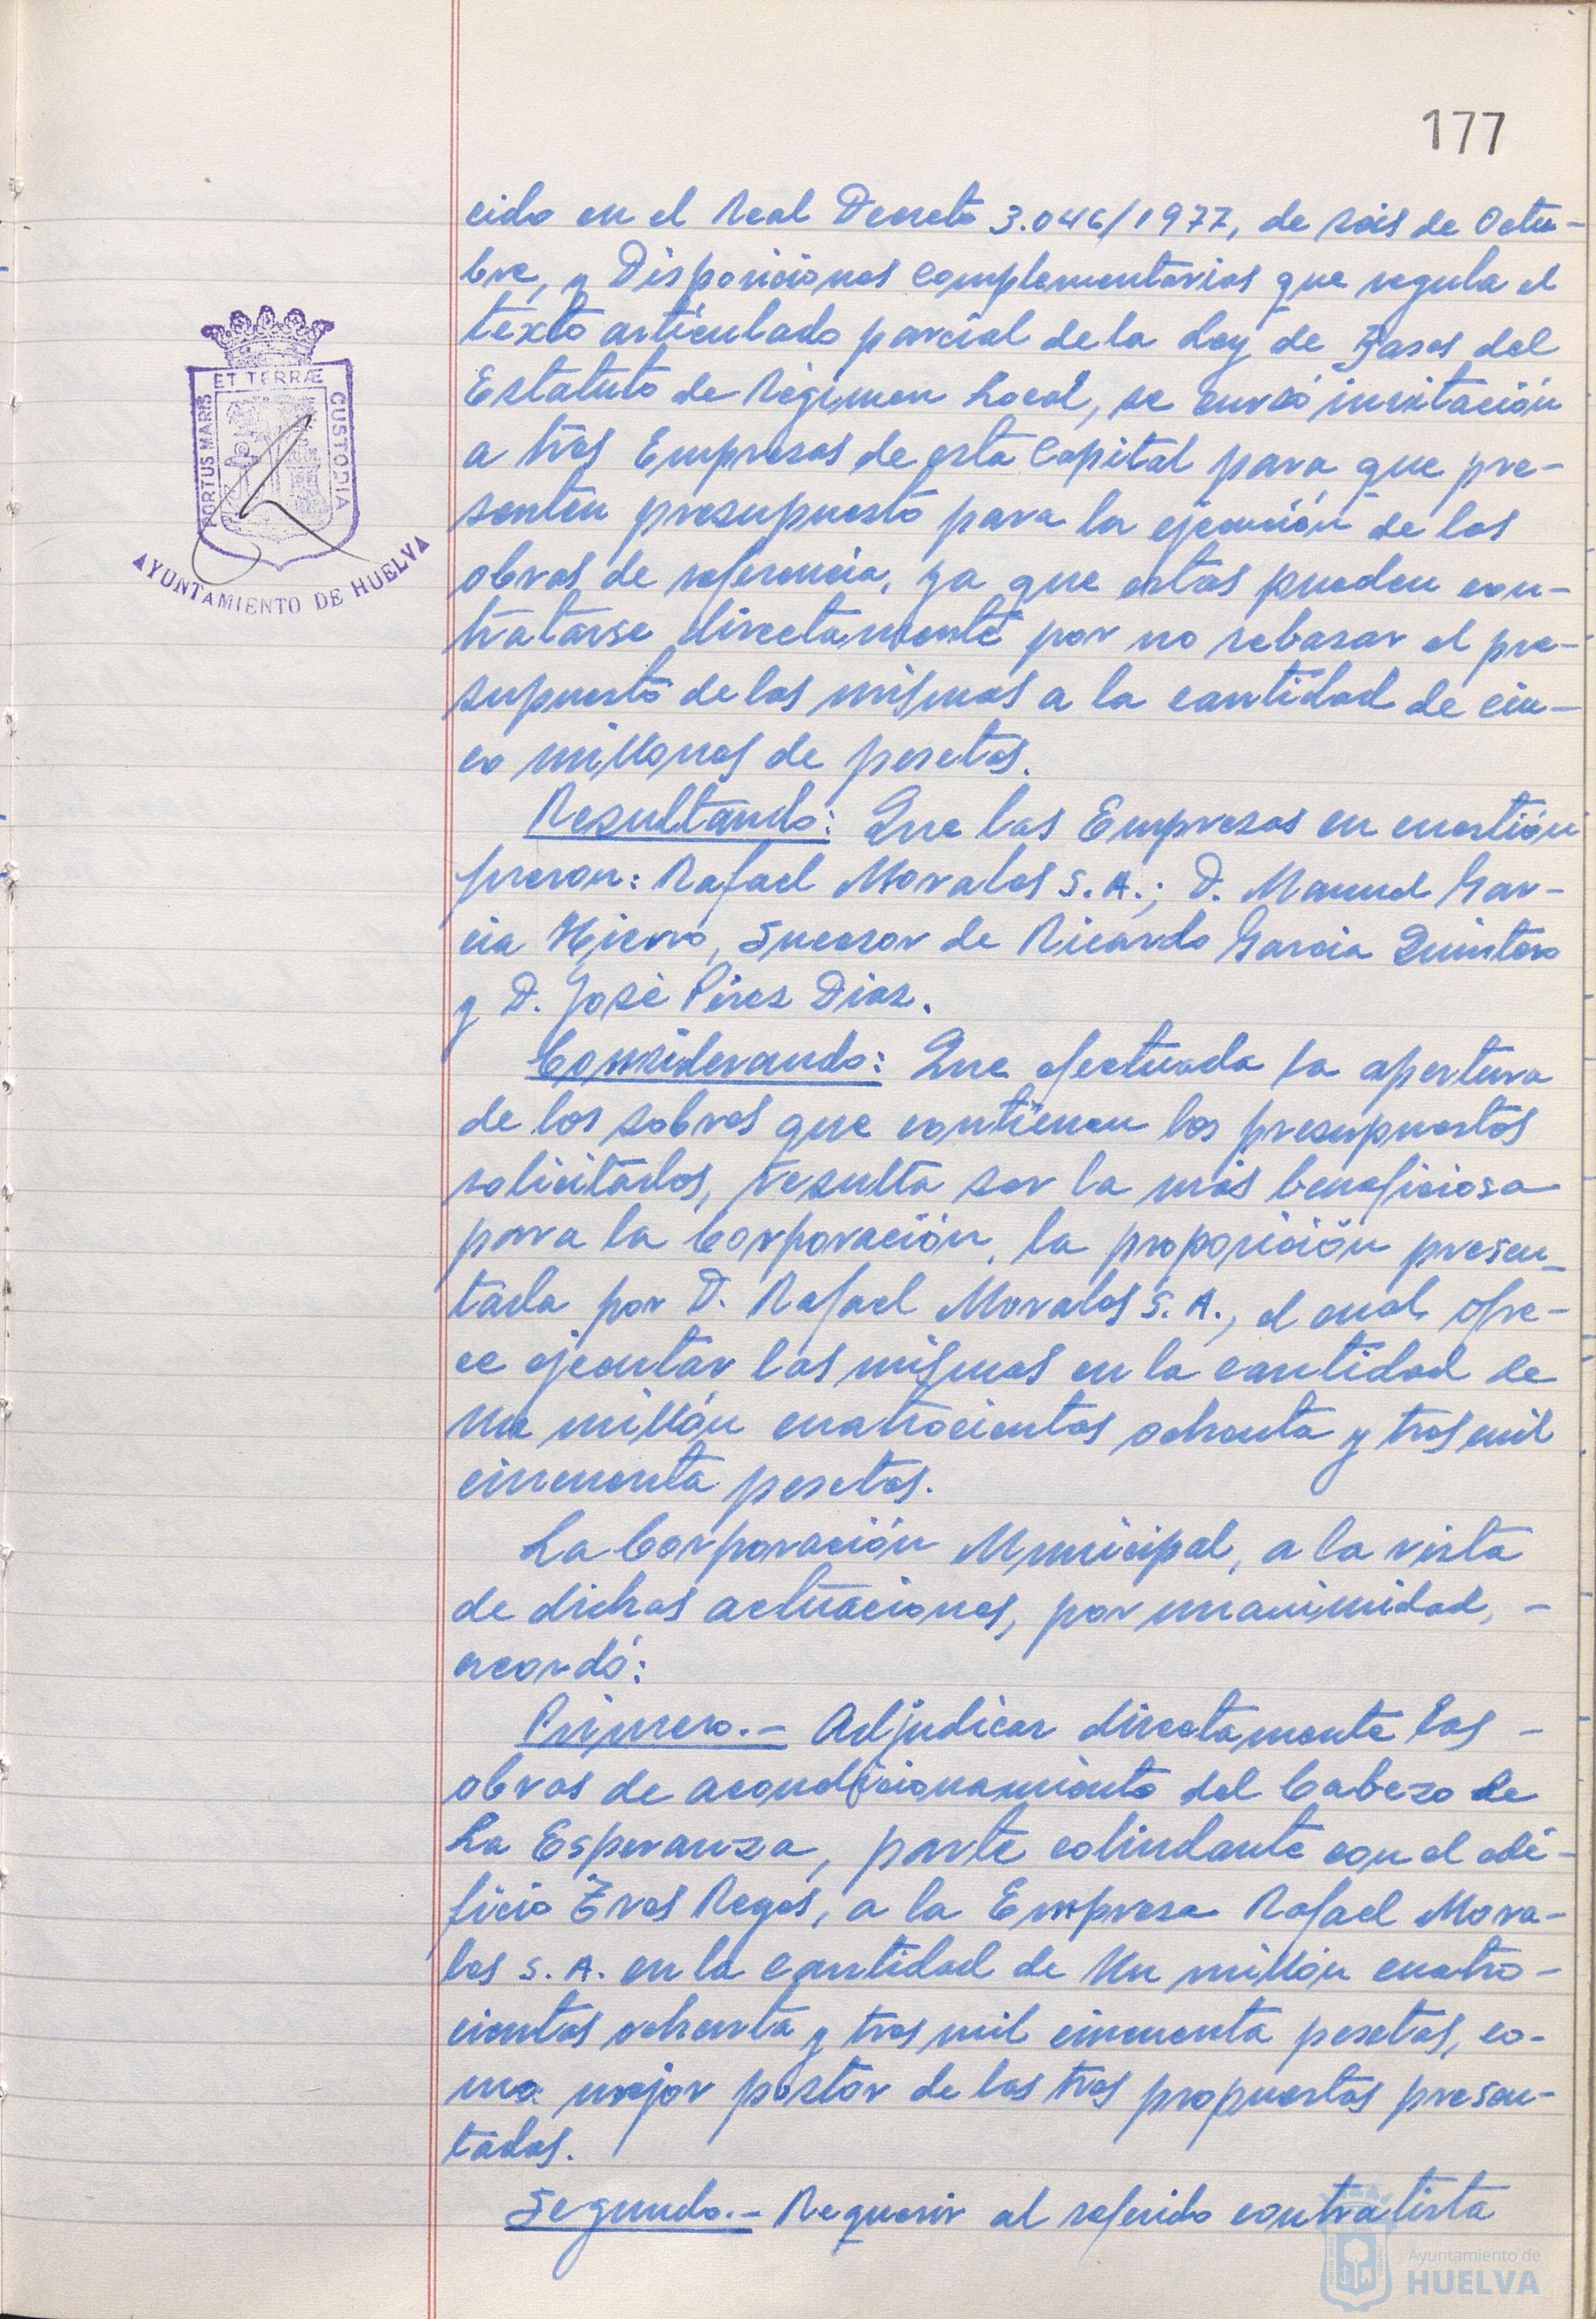 177
cido en el Real Decreto 3.046/1977, de seis de Octu-
bre, y Disposiciones complementarias que regula el
texto articulado parcial de la Ley de Bases del
Estatuto de Régimen Local, se cursó invitación
a tres Empresas de esta Capital para que pre-
senten presupuesto para la ejecución de las
obras de referencia, ya que estas pueden con-
tratarse directamente por no rebasar el pre-
supuesto de las mismas a la cantidad de cin-
co millones de pesetas.
Resultando: Que las Empresas en cuestión
fueron: Rafael Morales S.A.; D. Manuel Gar-
cia Hierro, Sucesor de Ricardo Garcia Quintero
y D. José Pérez Diaz.
Considerando: Que efectuada la apertura
de los sobres que contienen los presupuestos
solicitados, resulta ser la más beneficiosa
para la Corporación, la proposición presen_
tada por D. Rafael Morales S.A., el cual ofre-
ce ejecutar las mismas en la cantidad de
un millón cuatrocientas ochenta y tres mil
cincuenta pesetas.
La Corporación Municipal, a la vista
de dichas actuaciones, por unanimidad, -
acordó:
Primero.- Adjudicar directamente las -
obras de acondicionamiento del Cabezo de
La Esperanza, parte colindante con el edi-
ficio Tres Reyes, a la Empresa Rafael Mora-
les S.A. en la cantidad de Un millón cuatro-
cientas ochenta y tres mil cincuenta pesetas, co-
mo mejor postor de las tres propuestas presen-
tadas.
Segundo.- Requerir al referido contratista
PORTUS MARIS
ET TERRÆ
CUSTODIA
AYUNTAMIENTO DE HUELVA
Ayuntamiento de
HUELVA